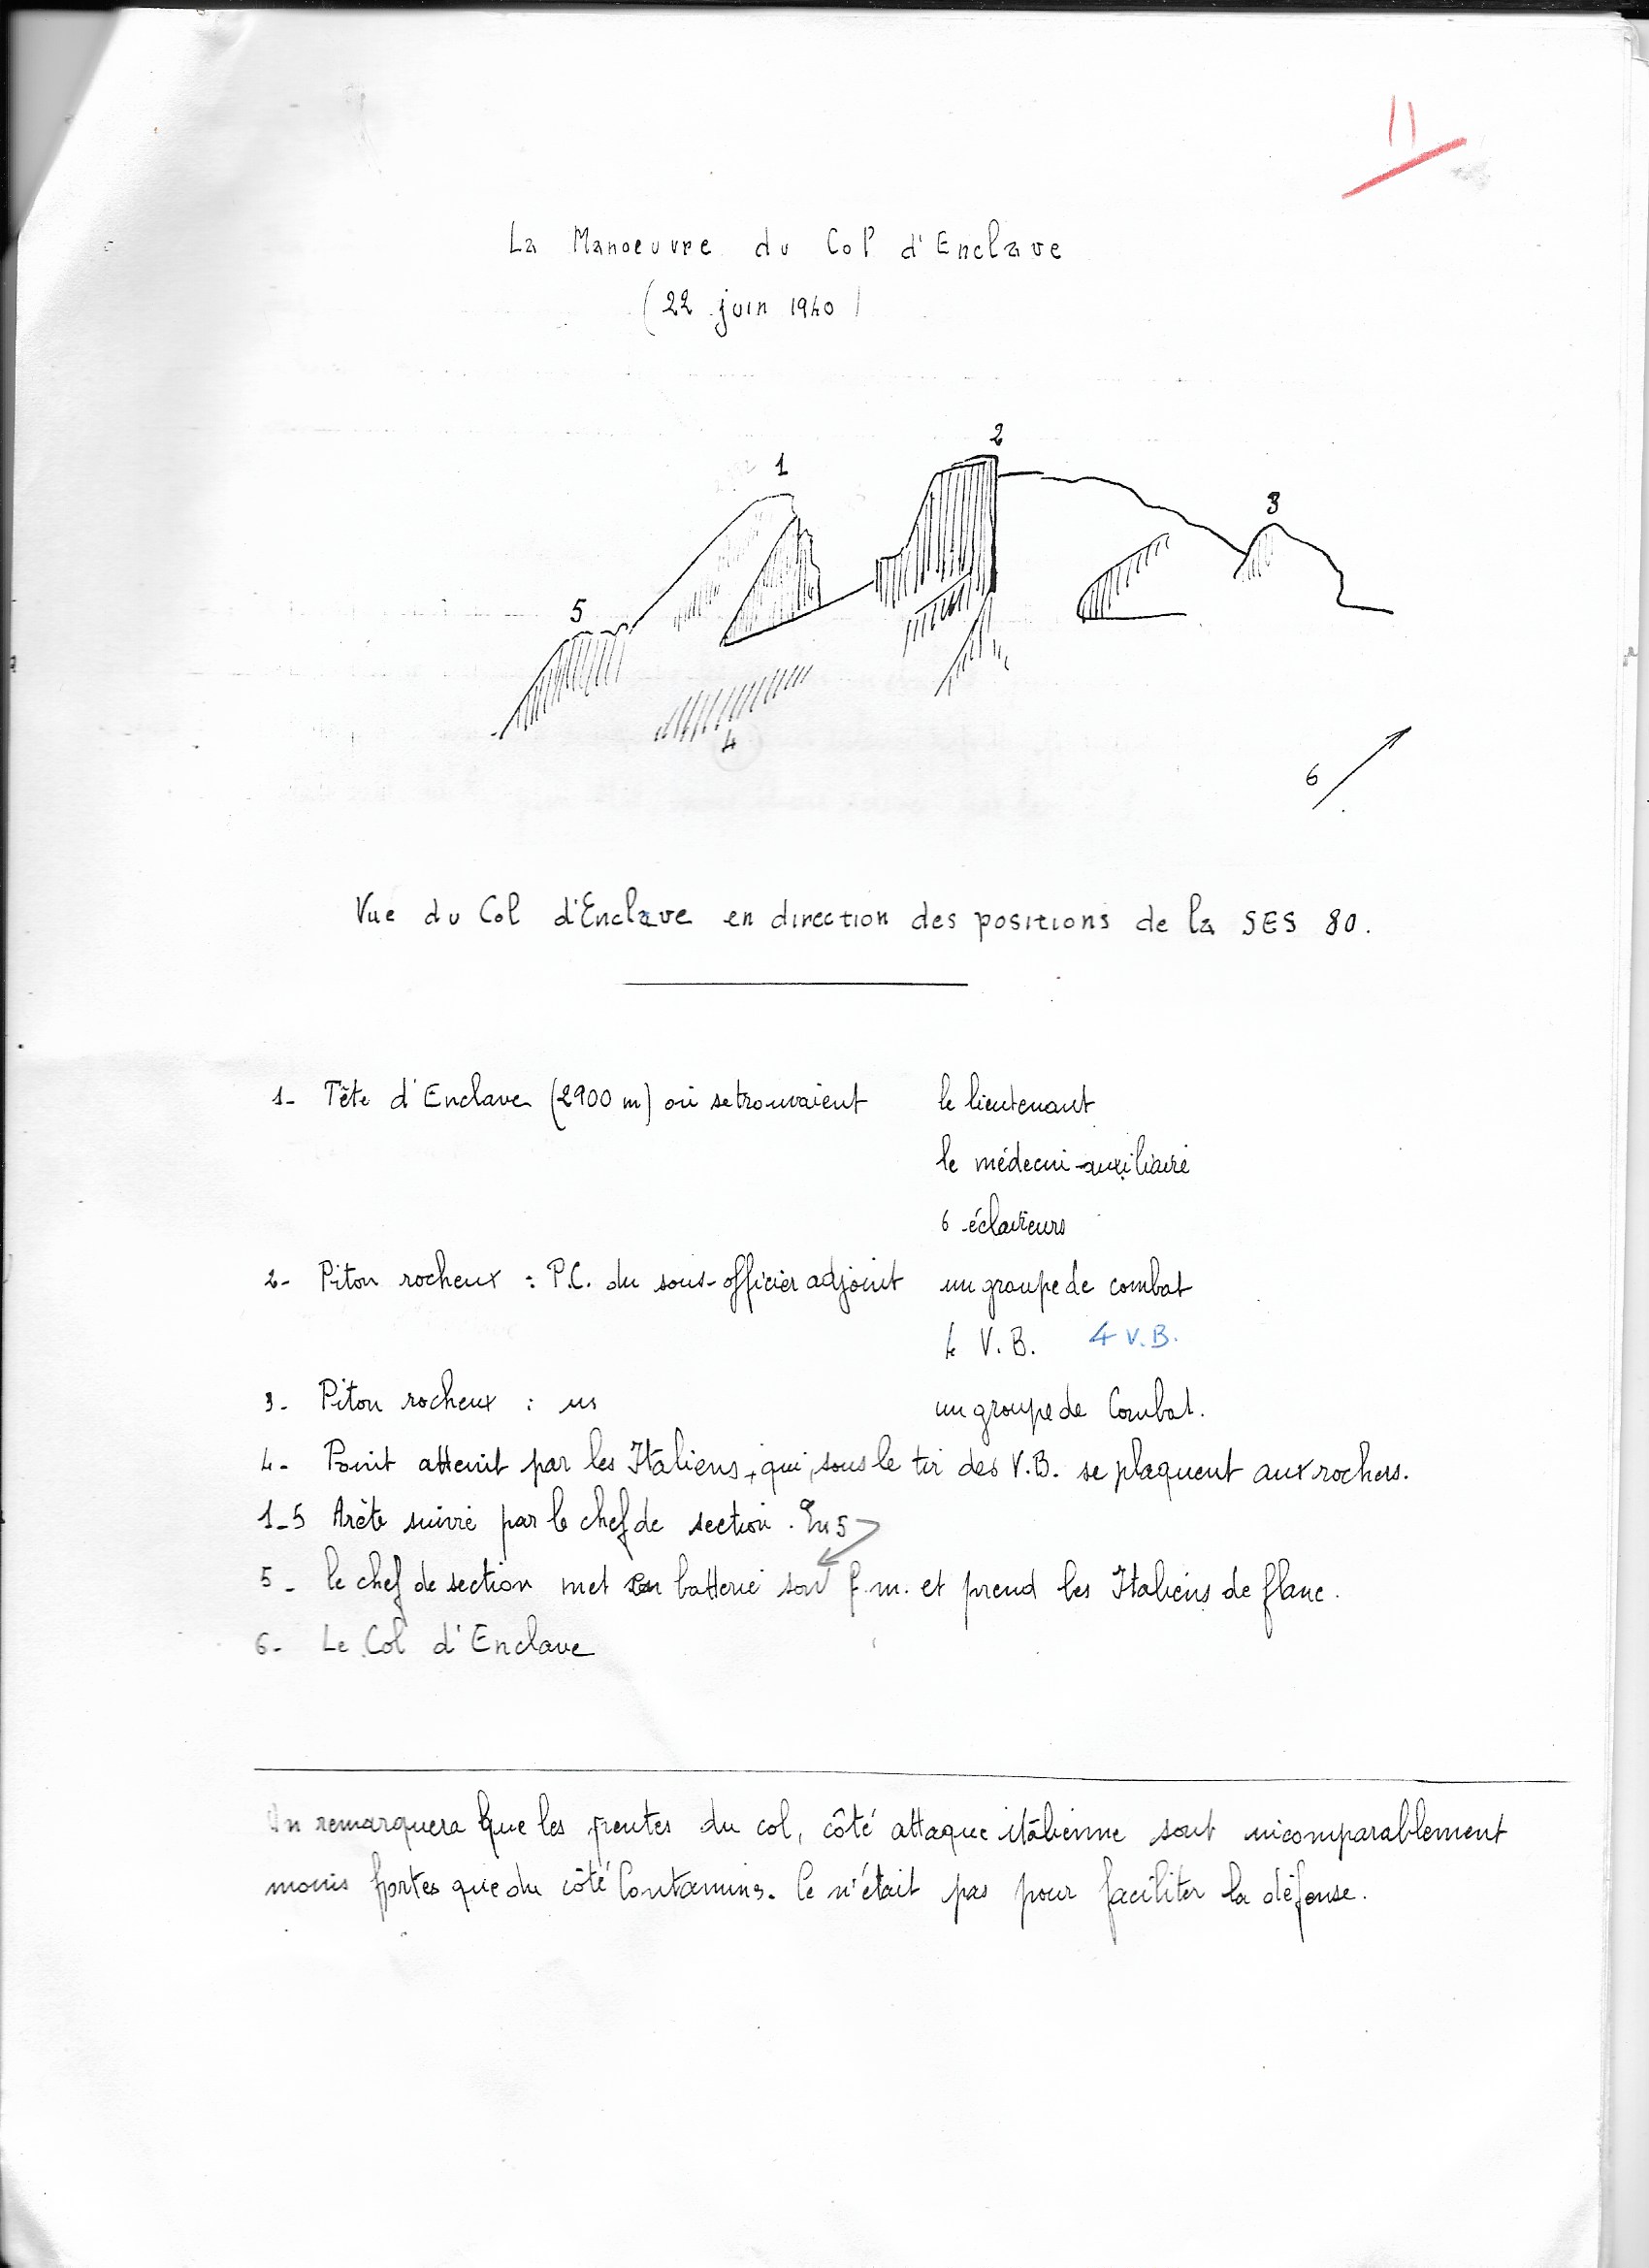 11
La Manoeuvre du Col d'Enclave
(22 juin 1940)
2
1
3
5
4
6
Vue du Col d'Enclave en direction des positions de la SES 80.
1- Tête d'Enclave (2900 m) où se trouvaient le lieutenant
le médecin-auxiliaire
6 éclaireurs
2- Piton rocheux : P.C. du sous-officier adjoint un groupe de combat
4 V.B. 4 V.B.
3- Piton rocheux : un groupe de Combat.
4- Point atteint par les Italiens, qui, sous le tir des V.B. se plaquent aux rochers.
1-5 Arête suivie par le chef de section. En 5
5- le chef de section met en batterie son f.m. et prend les Italiens de flanc.
6- Le Col d'Enclave
On remarquera que les pentes du col, côté attaque italienne sont incomparablement
moins fortes que du côté Contamins. Ce n'était pas pour faciliter la défense.